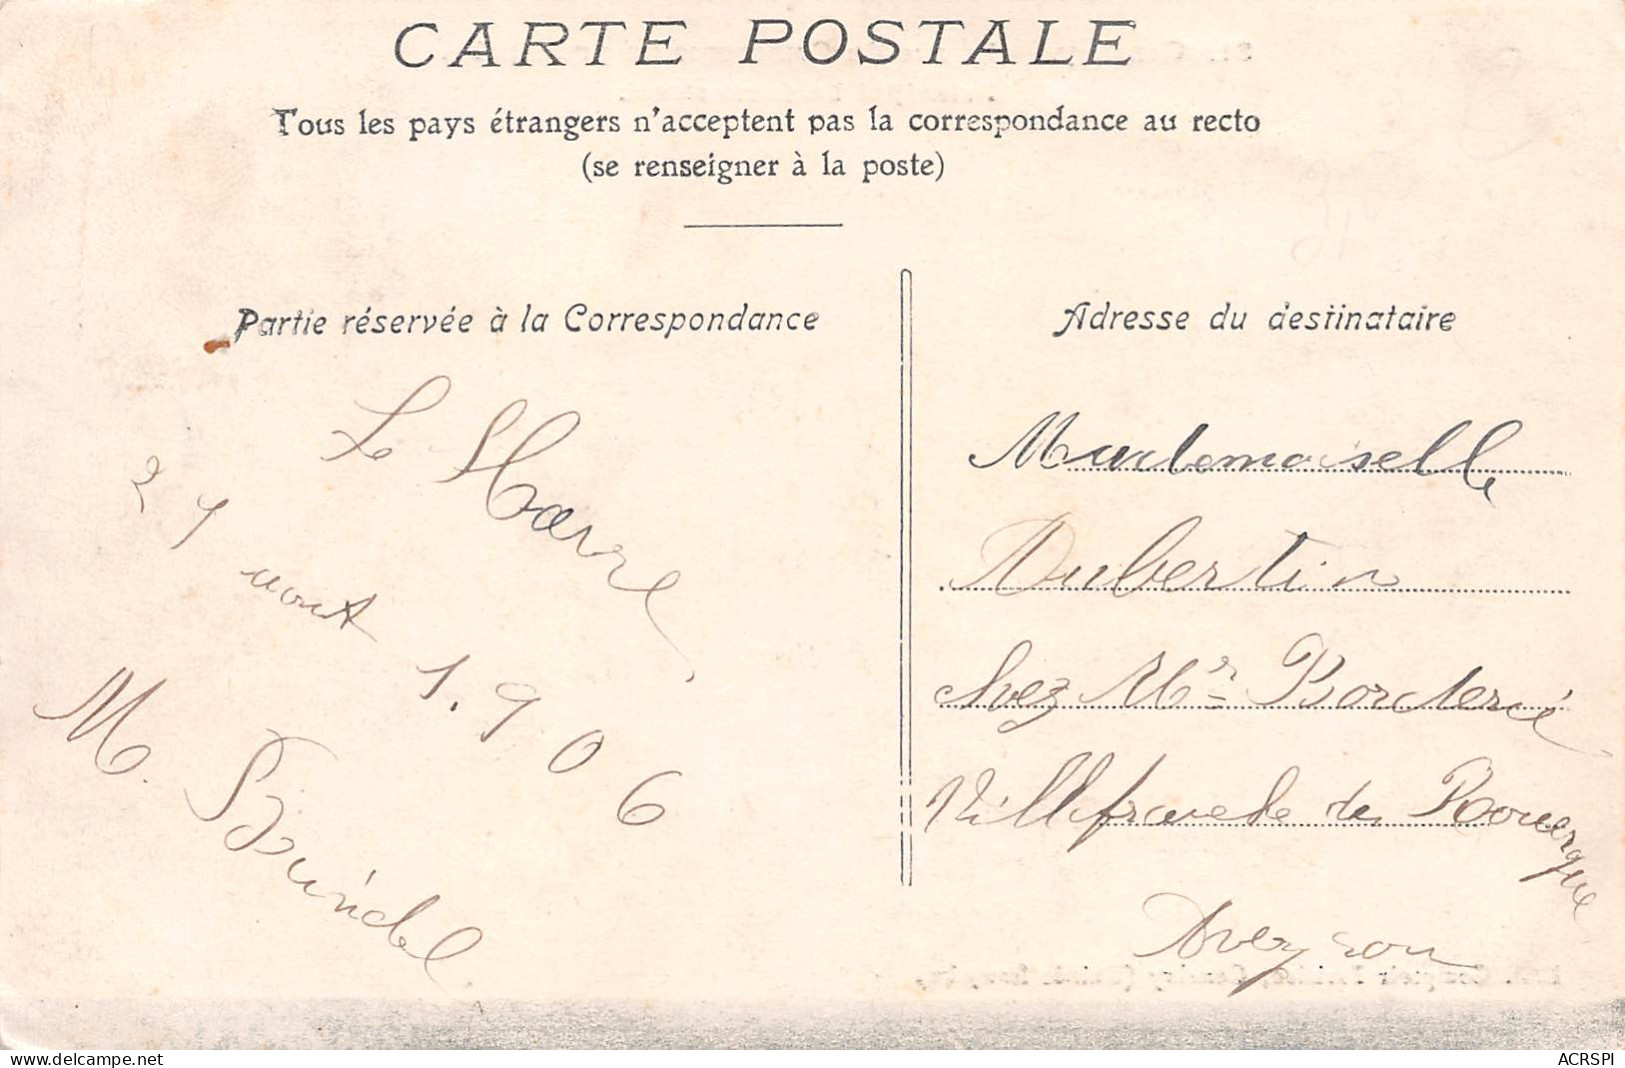 CARTE POSTALE
Tous les pays étrangers n'acceptent pas la correspondance au recto
(se renseigner à la poste)
Partie réservée à la Correspondance
Le Havre
21 aout 1.906
M.
Adresse du destinataire
Mademoiselle
Aubertin
chez Mr
Villefranche de Rouergue
Aveyron
www.delcampe.net
ACRSPI